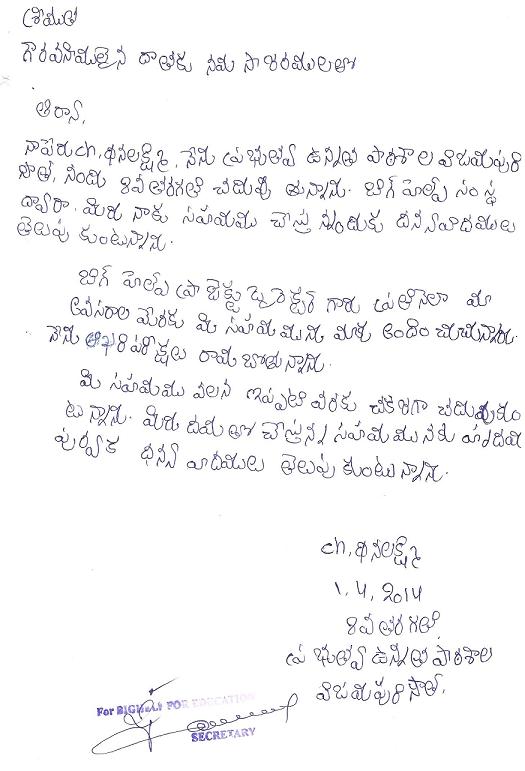 శ్రీమతి
గౌరవనీయులైన దాతకు నమస్కారములతో
ఆర్యా,
నాపేరు ch, ధనలక్ష్మి, నేను ప్రభుత్వ ఉన్నత పాఠశాల విజయపురి
సౌత్, నందు 8వ తరగతి చదువు తున్నాను. బిగ్ హెల్ప్ సంస్థ
ద్వారా మీరు నాకు సహయము చేస్తు న్నందుకు ధన్యవాదములు
తెలుపు కుంటున్నాను.
బిగ్ హెల్ప్ ప్రాజెక్టు డైరెక్టర్ గారు ప్రతినెలా మా
అవసరాల మేరకు మీ సహయ మును మాకు అందించుచున్నారు.
నేను ఆఖరి పరీక్షలు రాయ బోతున్నాను.
మీ సహయము వలన ఇప్పటి వరకు చక్కగా చదువుకుం
టున్నాను. మీరు దయతో చేస్తున్న సహయము నకు హృదయ
పూర్వక ధన్య వాదములు తెలుపు కుంటున్నాను.
ch, ధనలక్ష్మి
1.4.2014
8వ తరగతి,
ప్ర భుత్వ ఉన్నత పాఠశాల
విజయపురి సౌత్.
For BIGHELP FOR EDUCATION
SECRETARY